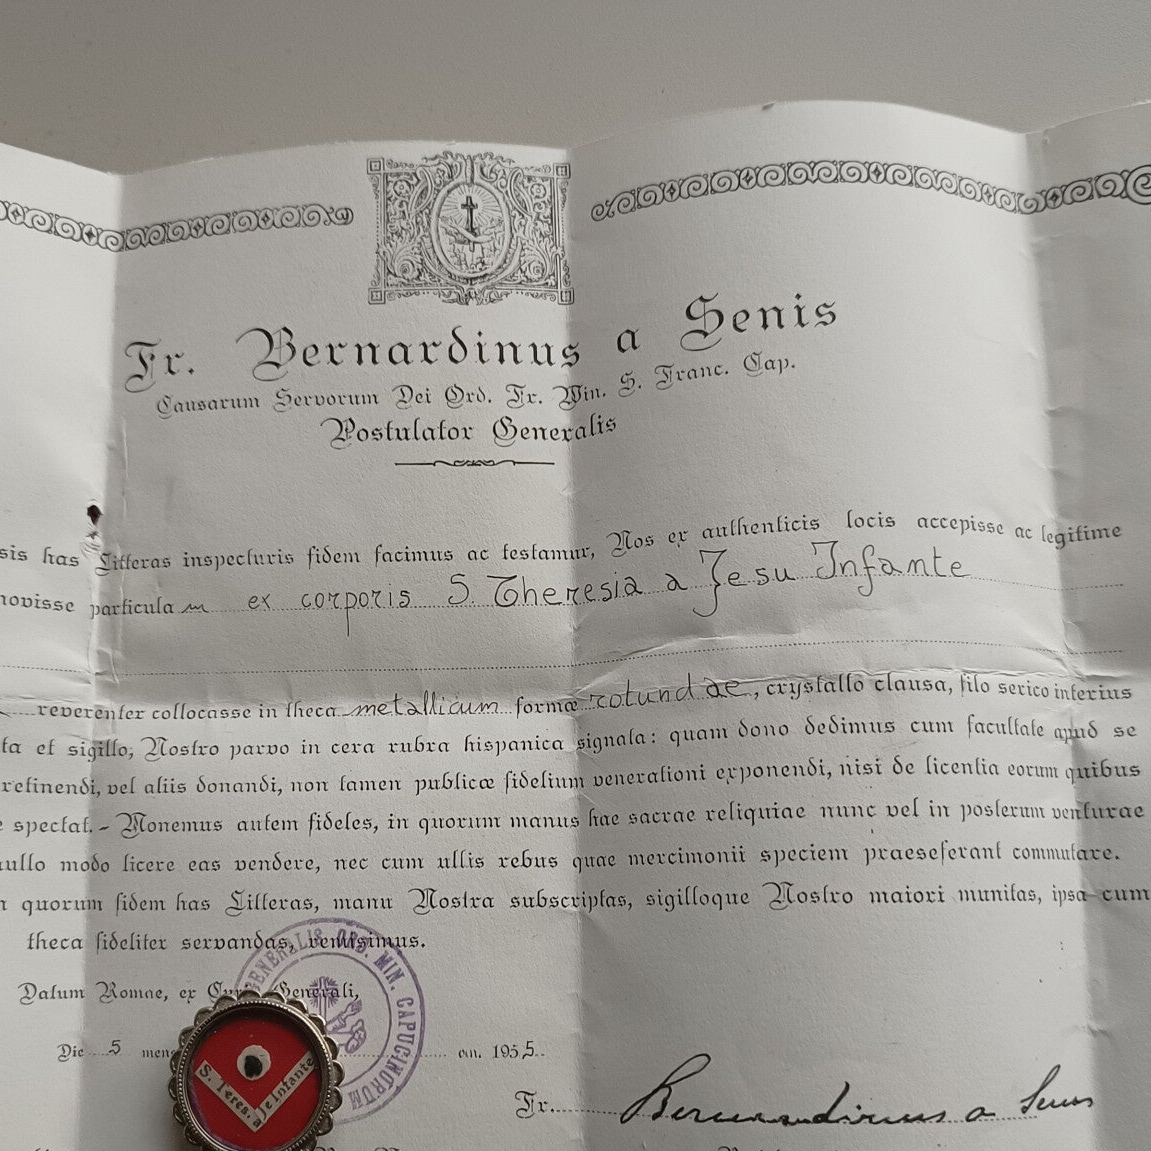 Fr. Bernardinus a Senis
Causarum Servorum Dei Ord. Fr. Min. S. Franc. Cap.
Postulator Generalis
sis has Litteras inspecturis fidem facimus ac testamur, Nos ex authenticis locis accepisse ac legitime
novisse particulam ex corporis S. Theresia a Jesu Infante
reverenter collocasse in theca metallicum formæ rotundae, crystallo clausa, filo serico interius
ta et sigillo, Nostro parvo in cera rubra hispanica signata: quam dono dedimus cum facultate apud se
retinendi, vel aliis donandi, non tamen publicæ fidelium venerationi exponendi, nisi de licentia eorum quibus
e spectat. - Monemus autem fideles, in quorum manus hae sacrae reliquiae nunc vel in posterum venturae
nullo modo licere eas vendere, nec cum ullis rebus quae mercimonii speciem praeseferant commutare.
n quorum fidem has Litteras, manu Nostra subscriptas, sigilloque Nostro maiori munitas, ipsa cum
theca fideliter servandas, remisimus.
GENERALIS ORD. MIN. CAPUCINORUM
Datum Romae, ex Generali,
Die 5 mens an. 1955.
S. Teres. a Je Infante
Fr. Bernardinus a Senis